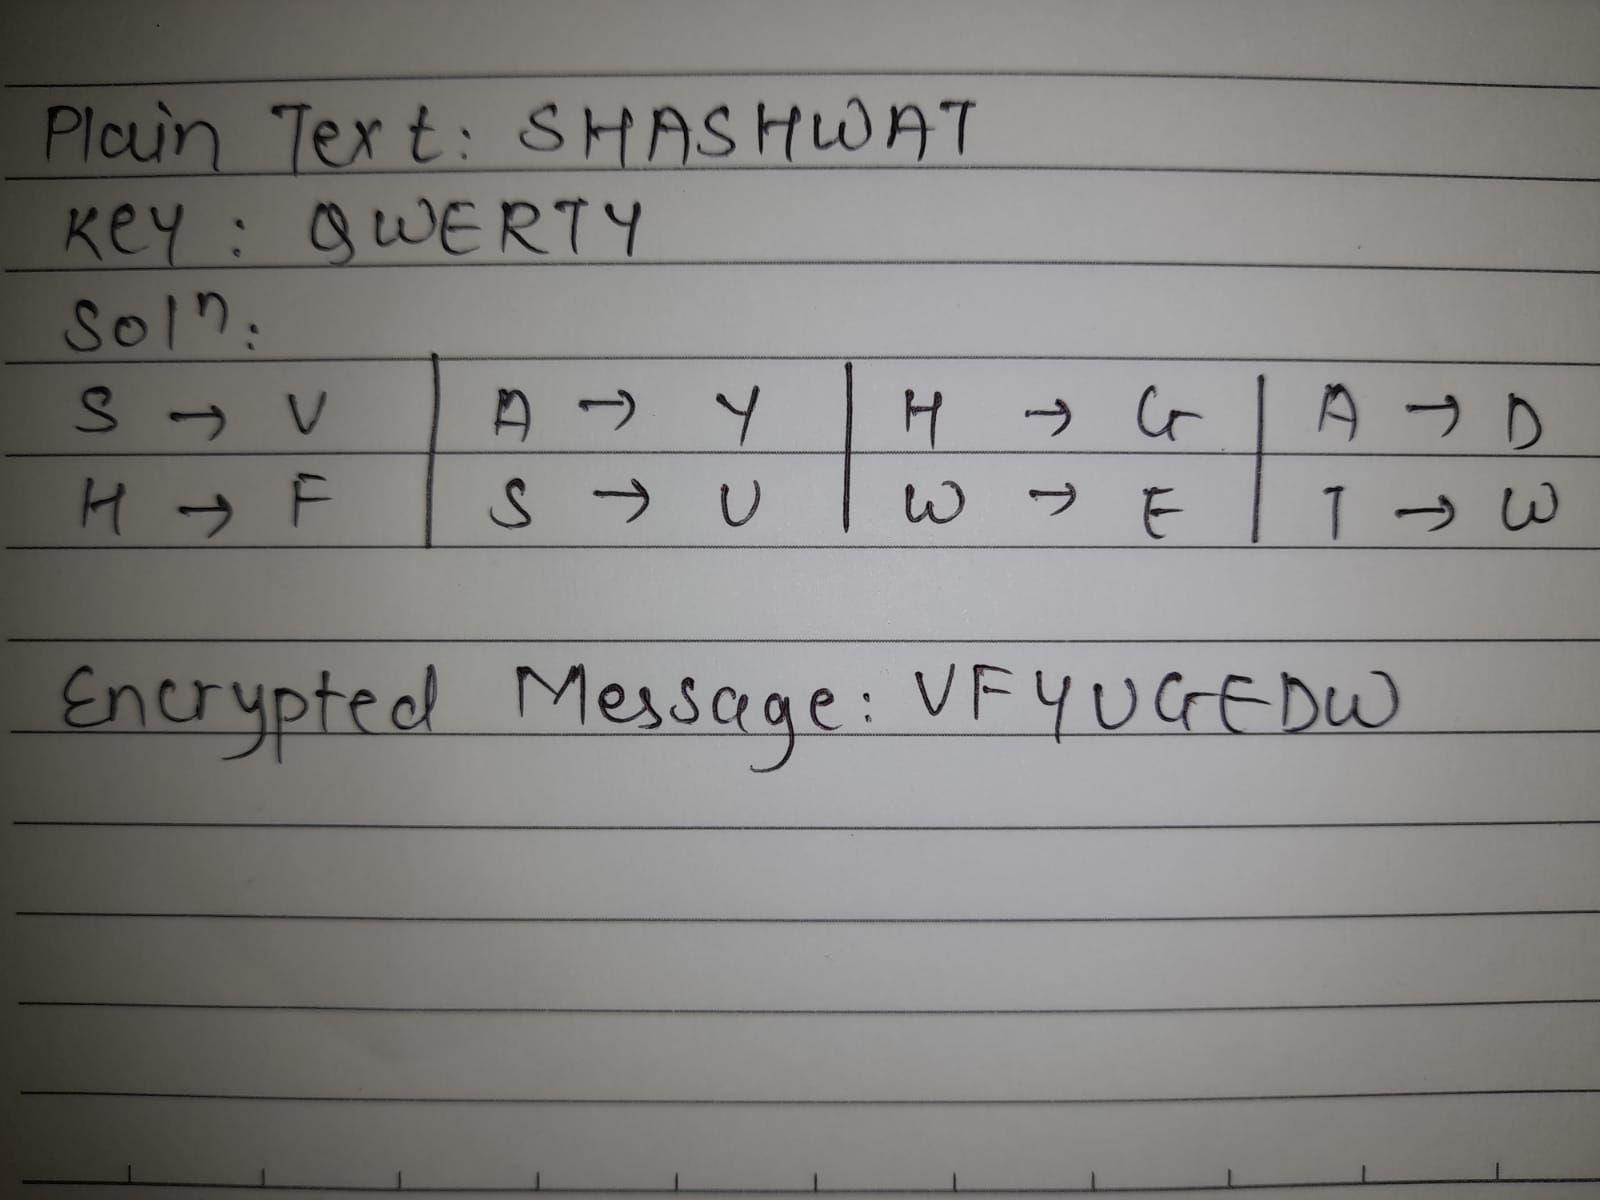 Plain Text: SHASHWAT
Key: QWERTY
Soln:
S → V | A → Y | H → G | A → D
H → F | S → U | W → E | T → W
Encrypted Message: VFYUGEDW